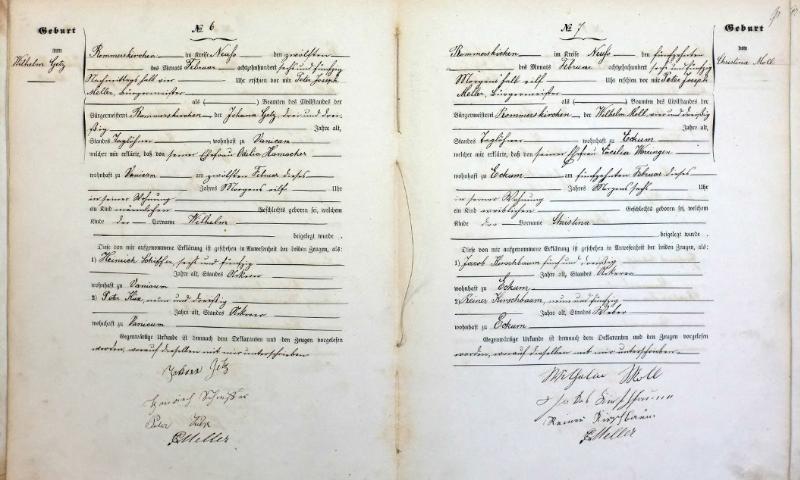 Geburt
von
Wilhelm Getz
№ 6
Rommerskirchen im Kreise Neuss den zwölften
des Monats Februar achtzehnhundert sechs und fünfzig
Nachmittags halb vier Uhr erschien vor mir Peter Joseph
Meller, Bürgermeister
als Beamten des Civilstandes der
Bürgermeisterei Rommerskirchen der Johann Getz, drei und drei-
ßig Jahre alt,
Standes Taglöhner wohnhaft zu Vanicum
welcher mir erklärte, daß von seiner Ehefrau Hamacher
wohnhaft zu Vanicum am zwölften Februar dieses
Jahres Morgens elf Uhr
in seiner Wohnung
ein Kind männlichen Geschlechts geboren sei, welchem
Kinde der Vorname Wilhelm
beigelegt wurde.
Diese von mir aufgenommene Erklärung ist geschehen in Anwesenheit der beiden Zeugen, als:
1) Heinrich sechs und fünfzig
Jahre alt, Standes Ackerer
wohnhaft zu Vanicum
2) Peter neun und dreißig
Jahre alt, Standes Ackerer
wohnhaft zu Vanicum
Gegenwärtige Urkunde ist demnach dem Deklaranten und den Zeugen vorgelesen
worden, worauf dieselben mit mir unterschrieben
Johann Getz
Heinrich
Peter
Meller
№ 7
Geburt
von
Christina Moll
Rommerskirchen im Kreise Neuss den fünfzehnten
des Monats Februar achtzehnhundert sechs und fünfzig
Morgens halb elf Uhr erschien vor mir Peter Joseph
Meller, Bürgermeister
als Beamten des Civilstandes der
Bürgermeisterei Rommerskirchen der Wilhelm Moll, vier und dreißig
Jahre alt,
Standes Taglöhner wohnhaft zu Eckum
welcher mir erklärte, daß von seiner Ehefrau Cäcilia Weringen
wohnhaft zu Eckum am fünfzehnten Februar dieses
Jahres Morgens sechs Uhr
in seiner Wohnung
ein Kind weiblichen Geschlechts geboren sei, welchem
Kinde der Vorname Christina
beigelegt wurde.
Diese von mir aufgenommene Erklärung ist geschehen in Anwesenheit der beiden Zeugen, als:
1) Jacob Kirschbaum fünf und dreißig
Jahre alt, Standes Ackerer
wohnhaft zu Eckum
2) Reiner Kirschbaum, neun und fünfzig
Jahre alt, Standes Weber
wohnhaft zu Eckum
Gegenwärtige Urkunde ist demnach dem Deklaranten und den Zeugen vorgelesen
worden, worauf dieselben mit mir unterschrieben
Wilhelm Moll
Jacob Kirschbaum
Reiner Kirschbaum
Meller